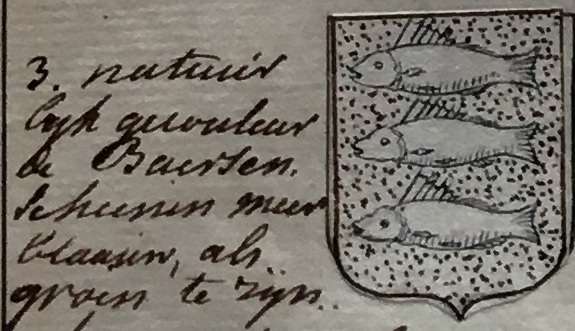 3. natuir
lijk gecouleur
de Baersen.
Schunen meer
blaauw, als
groen te zijn.